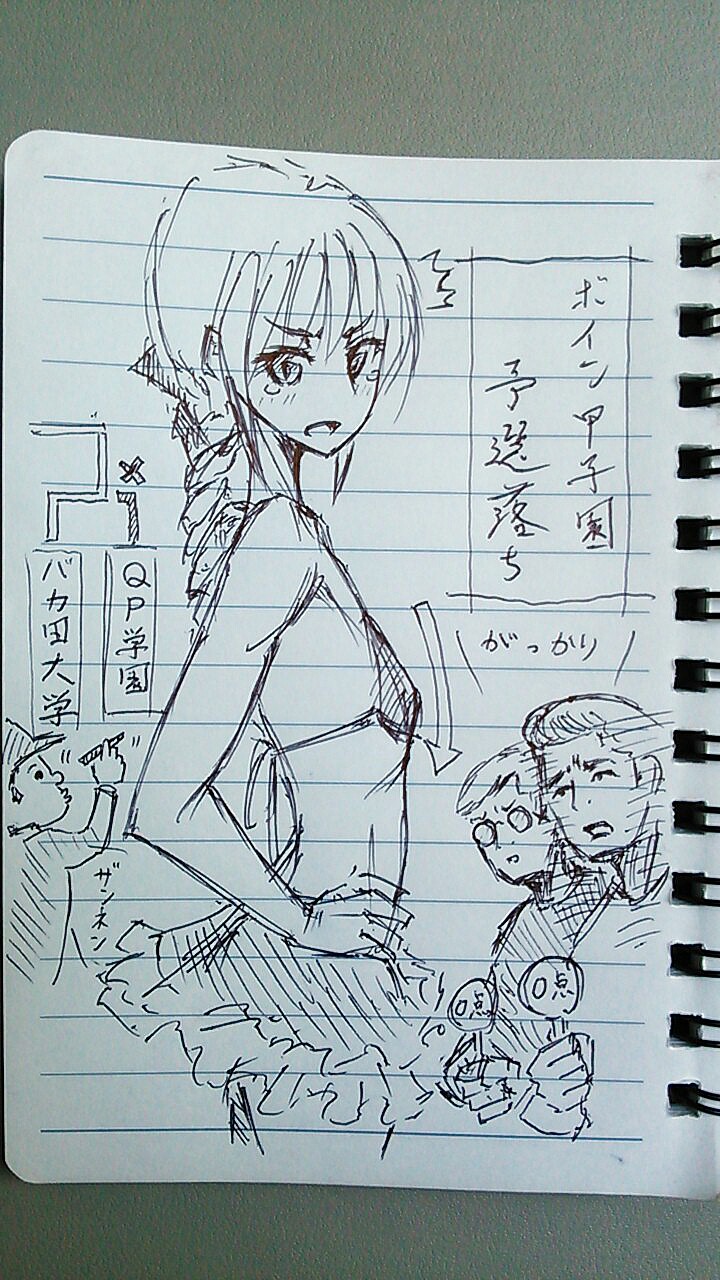 ボイン甲子園
予選落ち
がっかり
QP学園
バカ田大学
ザンネン
0点
0点